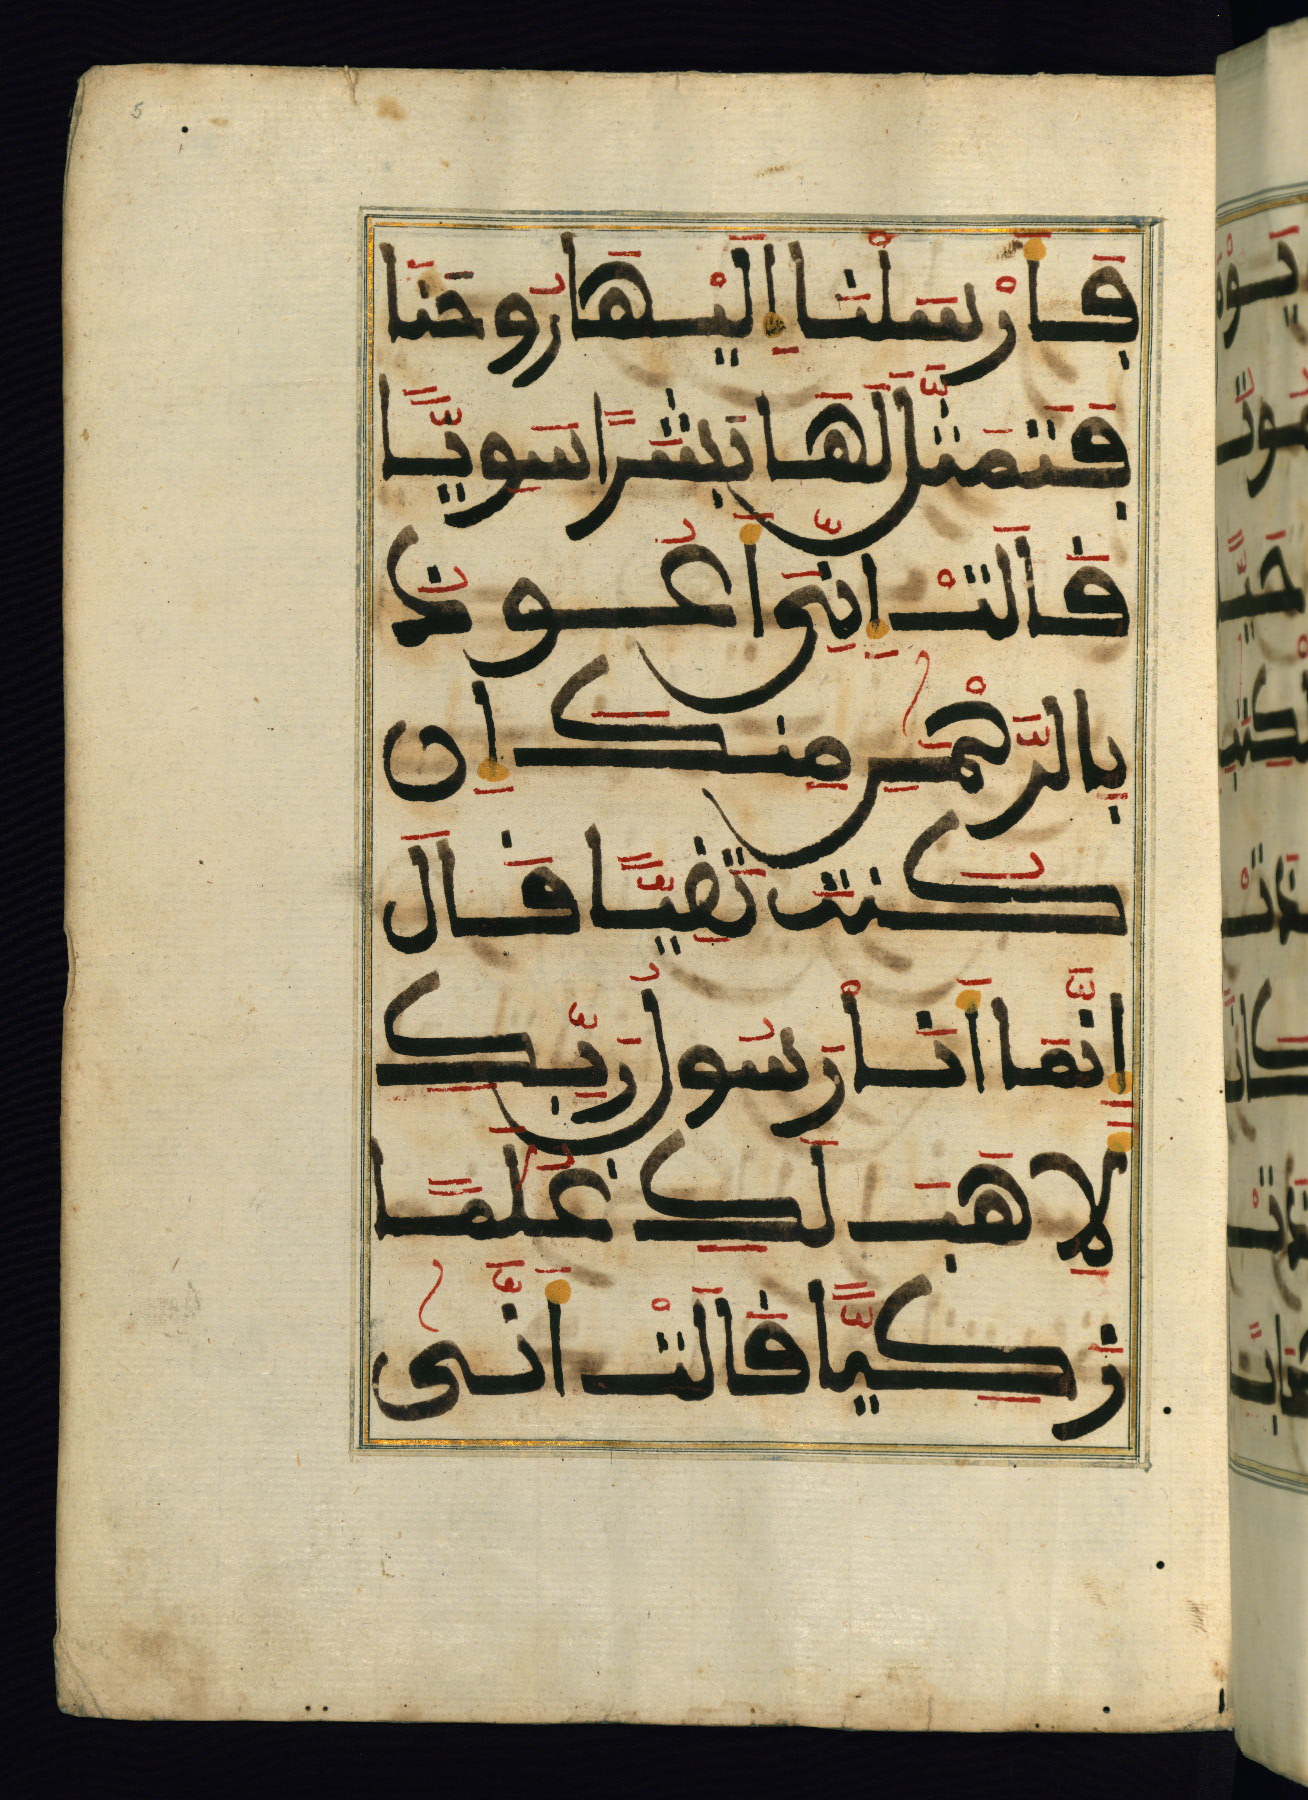 5
فَأَرْسَلْنَا إِلَيْهَا رُوحَنَا
فَتَمَثَّلَ لَهَا بَشَرًا سَوِيًّا
قَالَتْ إِنِّي أَعُوذُ
بِالرَّحْمَٰنِ مِنكَ إِن
كُنتَ تَقِيًّا قَالَ
إِنَّمَا أَنَا رَسُولُ رَبِّكِ
لِأَهَبَ لَكِ غُلَٰمًا
زَكِيًّا قَالَتْ أَنَّىٰ